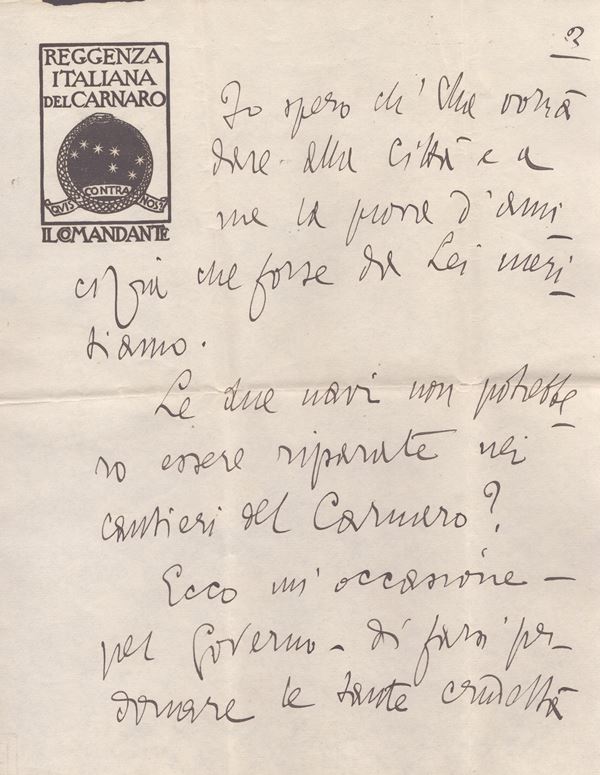 3
REGGENZA
ITALIANA
DEL CARNARO
QVIS CONTRA NOS?
IL COMANDANTE
Io spero ch' Ella vorrà
dare alla Città e a
me la prova d'ami
cizia che forse da Lei meri
tiamo.
Le due navi non potrebbe
ro essere riparate nei
cantieri del Carnaro?
Ecco un' occasione –
pel Governo – di farsi per–
donare le tante crudeltà